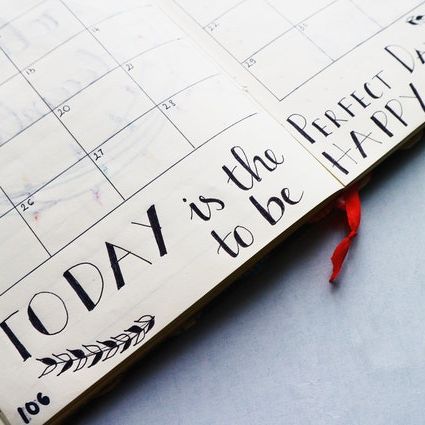 20
21
26
27
28
22
29
30
TODAY is the
to be
PERFECT DA
HAPPY
106